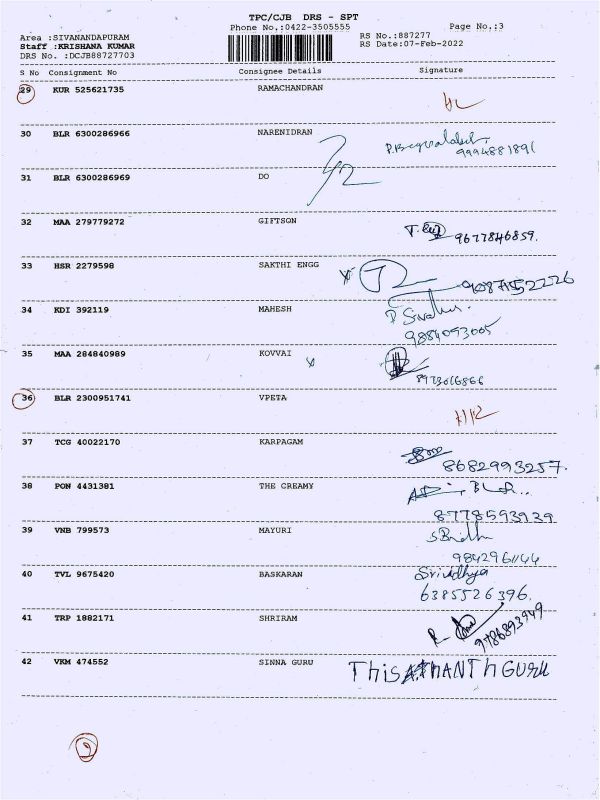 TPC/CJB DRS - SPT
Phone No.:0422-3505555 Page No.:3
Area :SIVANANDAPURAM RS No.:887277
Staff :KRISHANA KUMAR RS Date:07-Feb-2022
DRS No. :DCJB88727703
S No Consignment No Consignee Details Signature
29 KUR 525621735 RAMACHANDRAN
30 BLR 6300286966 NARENIDRAN
9994881891
31 BLR 6300286969 DO
32 MAA 279779272 GIFTSON
9677846859.
33 HSR 2279598 SAKTHI ENGG
34 KDI 392119 MAHESH
9884093005
35 MAA 284840989 KOVVAI
8973016866
36 BLR 2300951741 VPETA
37 TCG 40022170 KARPAGAM
8682993257.
38 PON 4431381 THE CREAMY
8778593939
39 VNB 799573 MAYURI
9842961144
40 TVL 9675420 BASKARAN
Srividhya
6385526396.
41 TRP 1882171 SHRIRAM
9786893949
42 VKM 474552 SINNA GURU